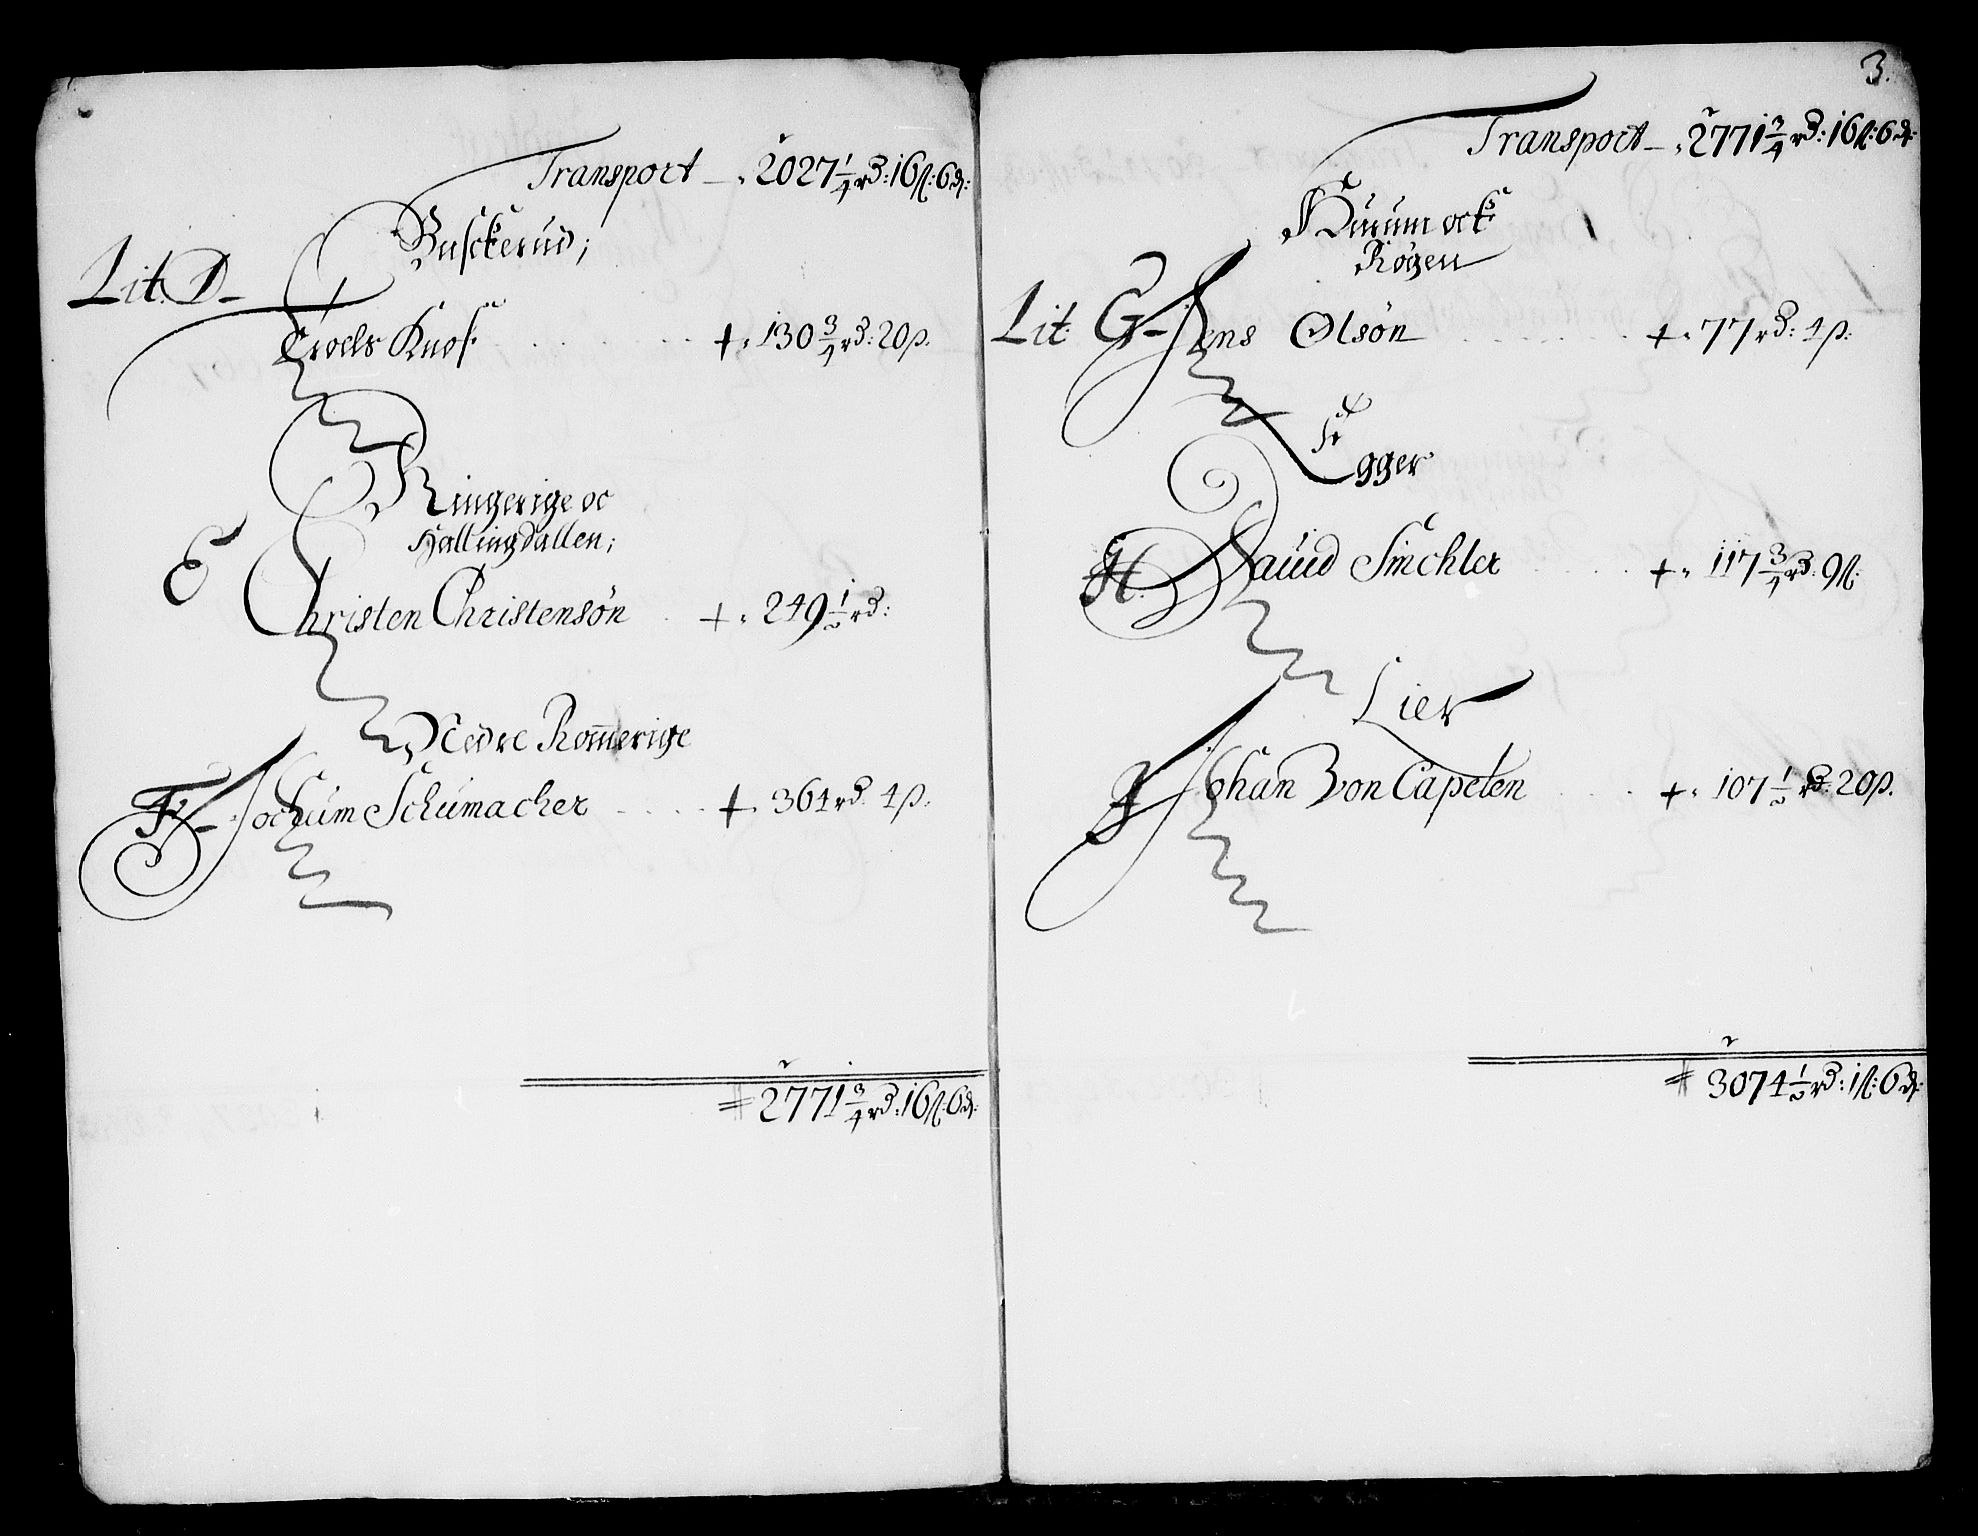 Transport — 2027 1/4 rd: 16 ß: 6 d:
Busckerud;
Lit. D–
Troels Knof. + 130 3/4 rd: 20 ß.
Ringerige oc
Hallingdallen;
E
Christen Christensøn + 249 1/2 rd:
Nedre Rom̄erige
F– Jochum Schumacher + 364 rd. 4 ß.
2771 3/4 rd: 16 ß: 6 d:
3.
Transport — 2771 3/4 rd: 16 ß: 6 d:
Hurum ock
Røgen
Lit: G– Jens Olsøn + 77 rd: 4 ß:
Egger
H. Dauid Sinchler + 117 3/4 rd: 9 ß:
Lier
J Johan Von Capelen + 107 1/2 rd. 20 ß.
3074 1/2 rd: 1 ß: 6 d: